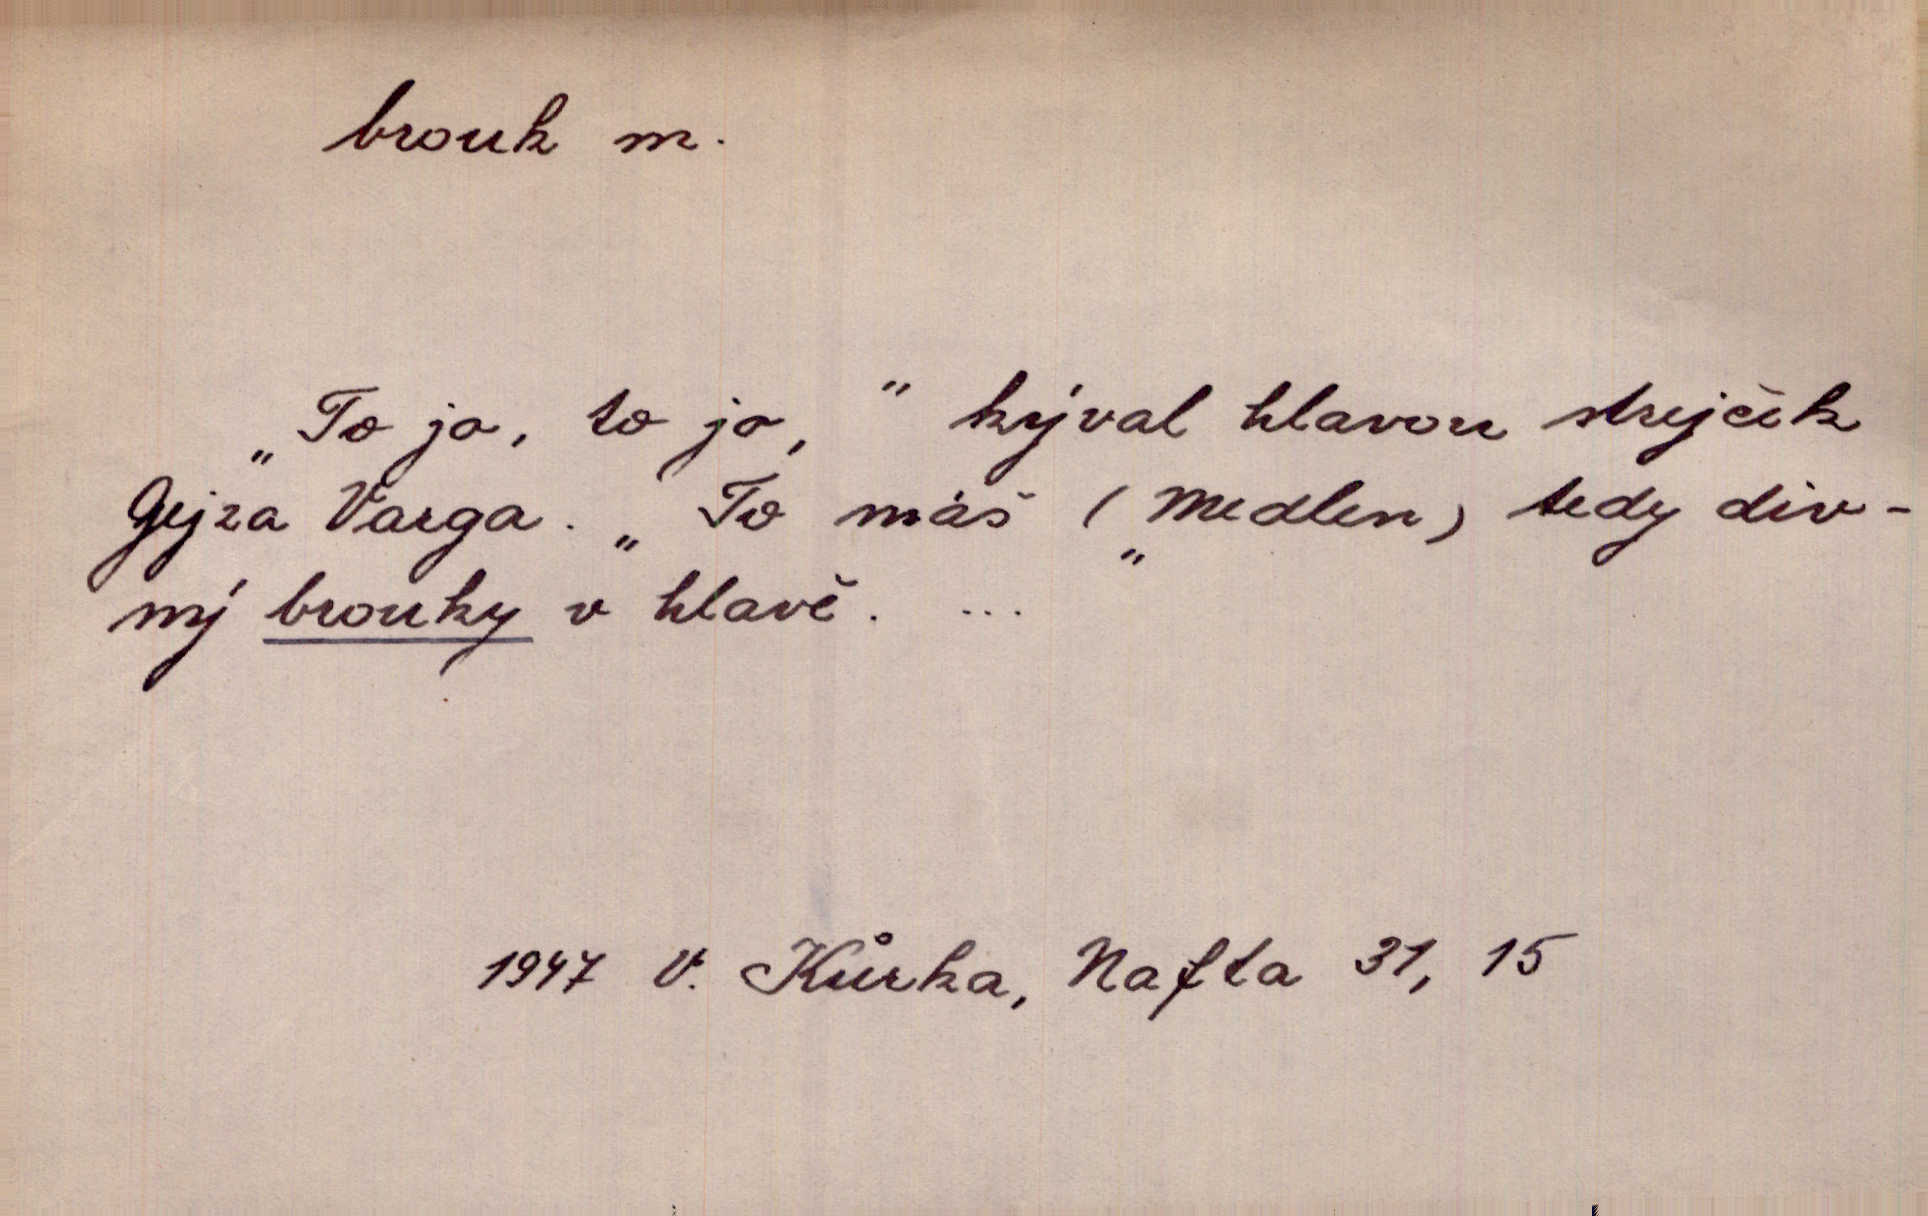 brouk m.
„To jo, to jo," kýval hlavou strejček
Gejza Varga. „To máš („Medlen) tedy div-
ný brouky v hlavě. ...
1947 V. Kůrka, Nafta 31, 15